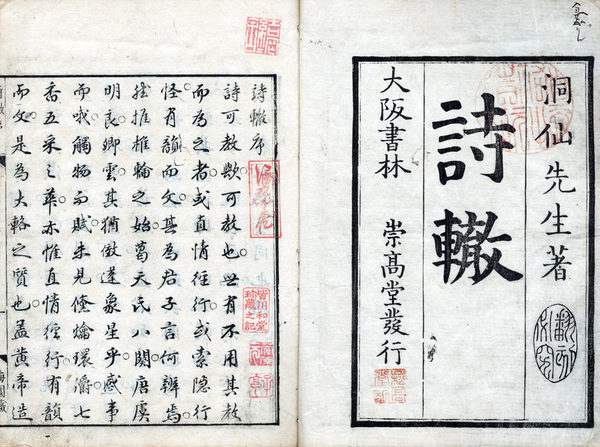 洞仙先生著
詩轍
大阪書林 崇高堂發行
詩轍序
詩可教歟可教也世有不用其教
而為之者或直情徑行或索隱行
怪有韻而文其為君子言何辨焉
然推椎輪之始葛天氏八闋唐虞
明良卿雲其猶象星乎感事
而哦觸物而賦未見環七
香五采之華亦惟直情徑行有韻
而文是為大輅之質也蓋黃帝造
梅園藏